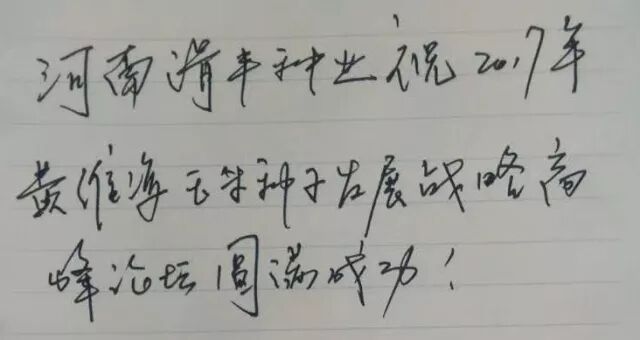 河南滑丰种业祝2017年
黄淮海玉米种子发展战略高
峰论坛圆满成功!